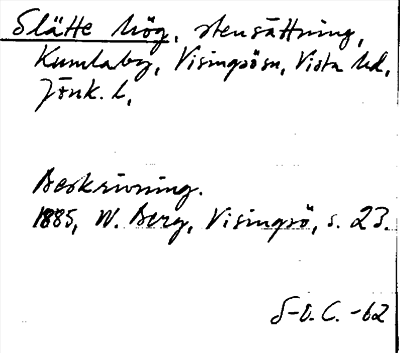 Slätte hög, stensättning,
Kumlaby, Visingsö sn, Vista hd,
Jönk. l.
Beskrivning.
1885, W. Berg, Visingsö, s. 23.
S-O. C. -62